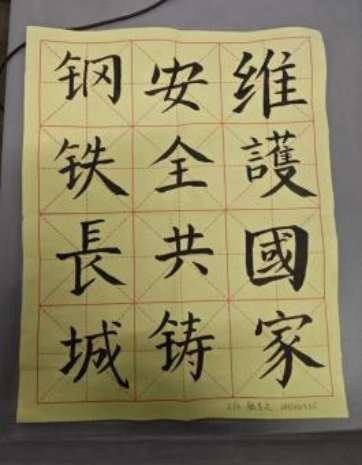 维護國家
安全共铸
钢铁長城